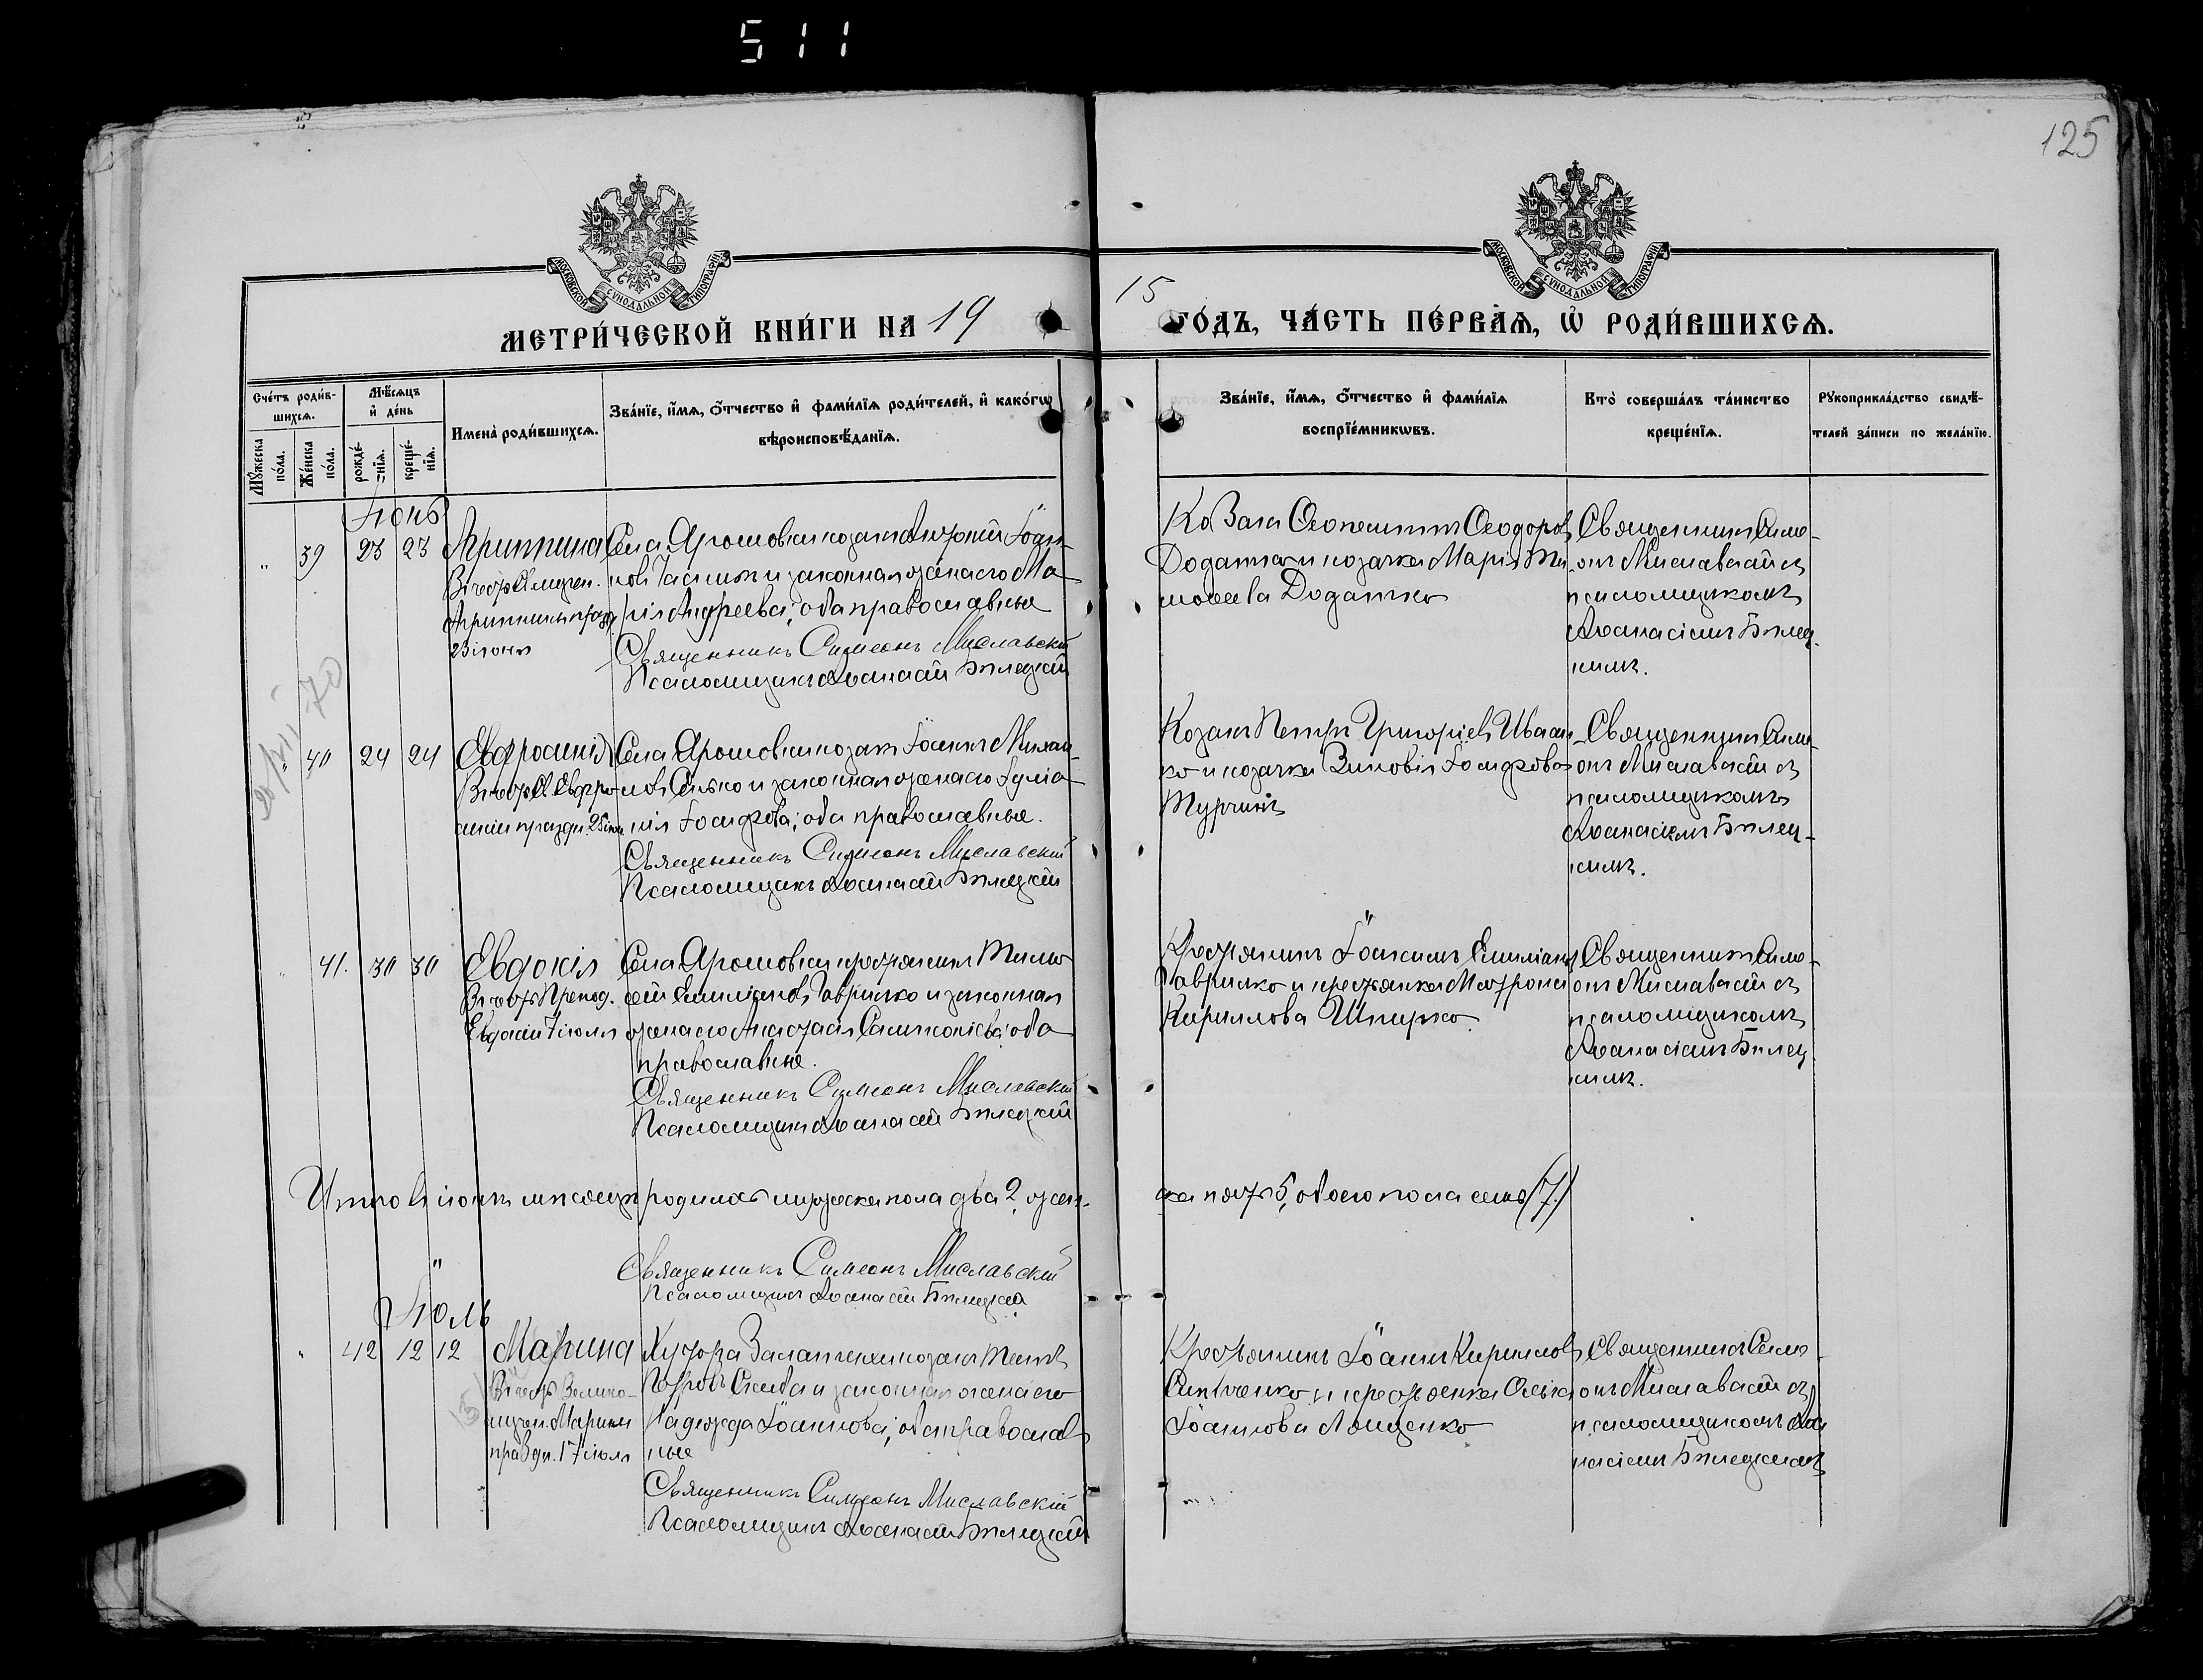 511
125
МОСКОВСКОЙ СѴНОДАЛЬНОЙ ТИПОГРАФІИ
МОСКОВСКОЙ СѴНОДАЛЬНОЙ ТИПОГРАФІИ
МЕТРИ́ЧЕСКОЙ КНИ́ГИ НА 1915 ГО́ДЪ, ЧА́СТЬ ПЕ́РВАЯ, Ѡ РОДИ́ВШИХСЯ.
Сче́тъ роди́в-
шихся.
Му́жеска по́ла.
Же́нска по́ла.
Мѣ́сяцъ
и де́нь
рожде́-
нїя.
креще́-
нїя.
Имена̀ роди́вшихся.
Зва́нїе, и́мя, о́тчество и фами́лїя роди́телей, и како́гѡ
вѣроисповѣ́данїя.
Зва́нїе, и́мя, о́тчество и фами́лїя
воспрїе́мникѡвъ.
Кто̀ соверша́лъ та́инство
креще́нїя.
Рукоприкла́дство свидѣ́-
телей за́писи по жела́нїю.
Іюнь
" 39 23 23 Агриппина
Въ честь Св. мучен.
Агриппины празд.
23 іюня
Села Ярошовки козакъ Іоан-
новъ и законная жена его Ма-
рія Андреева; оба православные
Священникъ Симеонъ Миславскій
Псаломщикъ Аѳанасій Бѣлецкій
Козакъ Ѳеодоровъ
Додатко и козачка Марія Ти-
моѳеева Додатко
Священникъ Симе-
онъ Миславскій съ
псаломщикомъ
Аѳанасіемъ Бѣлец-
кимъ.
" 40 24 24 Евфросинія
Въ честь Св. Евфро-
синіи праздн. 25 іюня
Села Ярошовки козакъ Іоаннъ Михаи-
ловъ и законная жена его Іуліа-
нія Іосифова; оба православные.
Священникъ Симеонъ Миславскій
Псаломщикъ Аѳанасій Бѣлецкій
Козакъ Петръ Григоріевъ Иваш-
ко и козачка Зиновія Іосифова
Турчинъ
Священникъ Симе-
онъ Миславскій съ
псаломщикомъ
Аѳанасіемъ Бѣлец-
кимъ.
" 41. 30 30 Евдокія
Въ честь Препод.
Евдокіи 7 іюля
Села Ярошовки крестьянинъ Тимо-
ѳей Емиліановъ Гавришко и законная
жена его Анастасія; оба
православные.
Священникъ Симеонъ Миславскій
Псаломщикъ Аѳанасій Бѣлецкій
Крестьянинъ Іоакимъ Емиліановъ
Гавришко и крестьянка Матрона
Кириллова Шпирко
Священникъ Симе-
онъ Миславскій съ
псаломщикомъ
Аѳанасіемъ Бѣлец-
кимъ.
Итого въ іюнѣ мѣсяцѣ родилось мужеска пола два 2, жен-
ска пять 5, обоего пола семь (7.)
Священникъ Симеонъ Миславскій
Псаломщикъ Аѳанасій Бѣлецкій
Іюль
" 42 12 12 Марина
Въ честь Велико-
мучен. Марины
праздн. 17 іюля
Хутора козакъ
Петровъ и законная жена его
Надежда Іоаннова; оба православ-
ные
Священникъ Симеонъ Миславскій
Псаломщикъ Аѳанасій Бѣлецкій
Крестьянинъ Іоаннъ Кирилловъ
и крестьянка Ольга
Іоаннова Лощенко
Священникъ Симе-
онъ Миславскій съ
псаломщикомъ Аѳа-
насіемъ Бѣлецкимъ